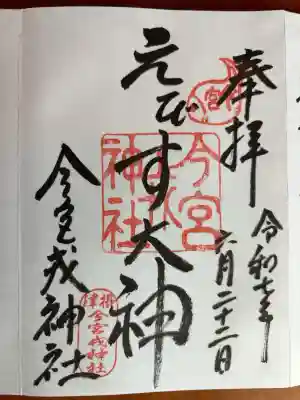 奉拝
令和七年
六月二十二日
えびす大神
今宮戎神社
今宮
戎
神社
摂津
今宮戎神社